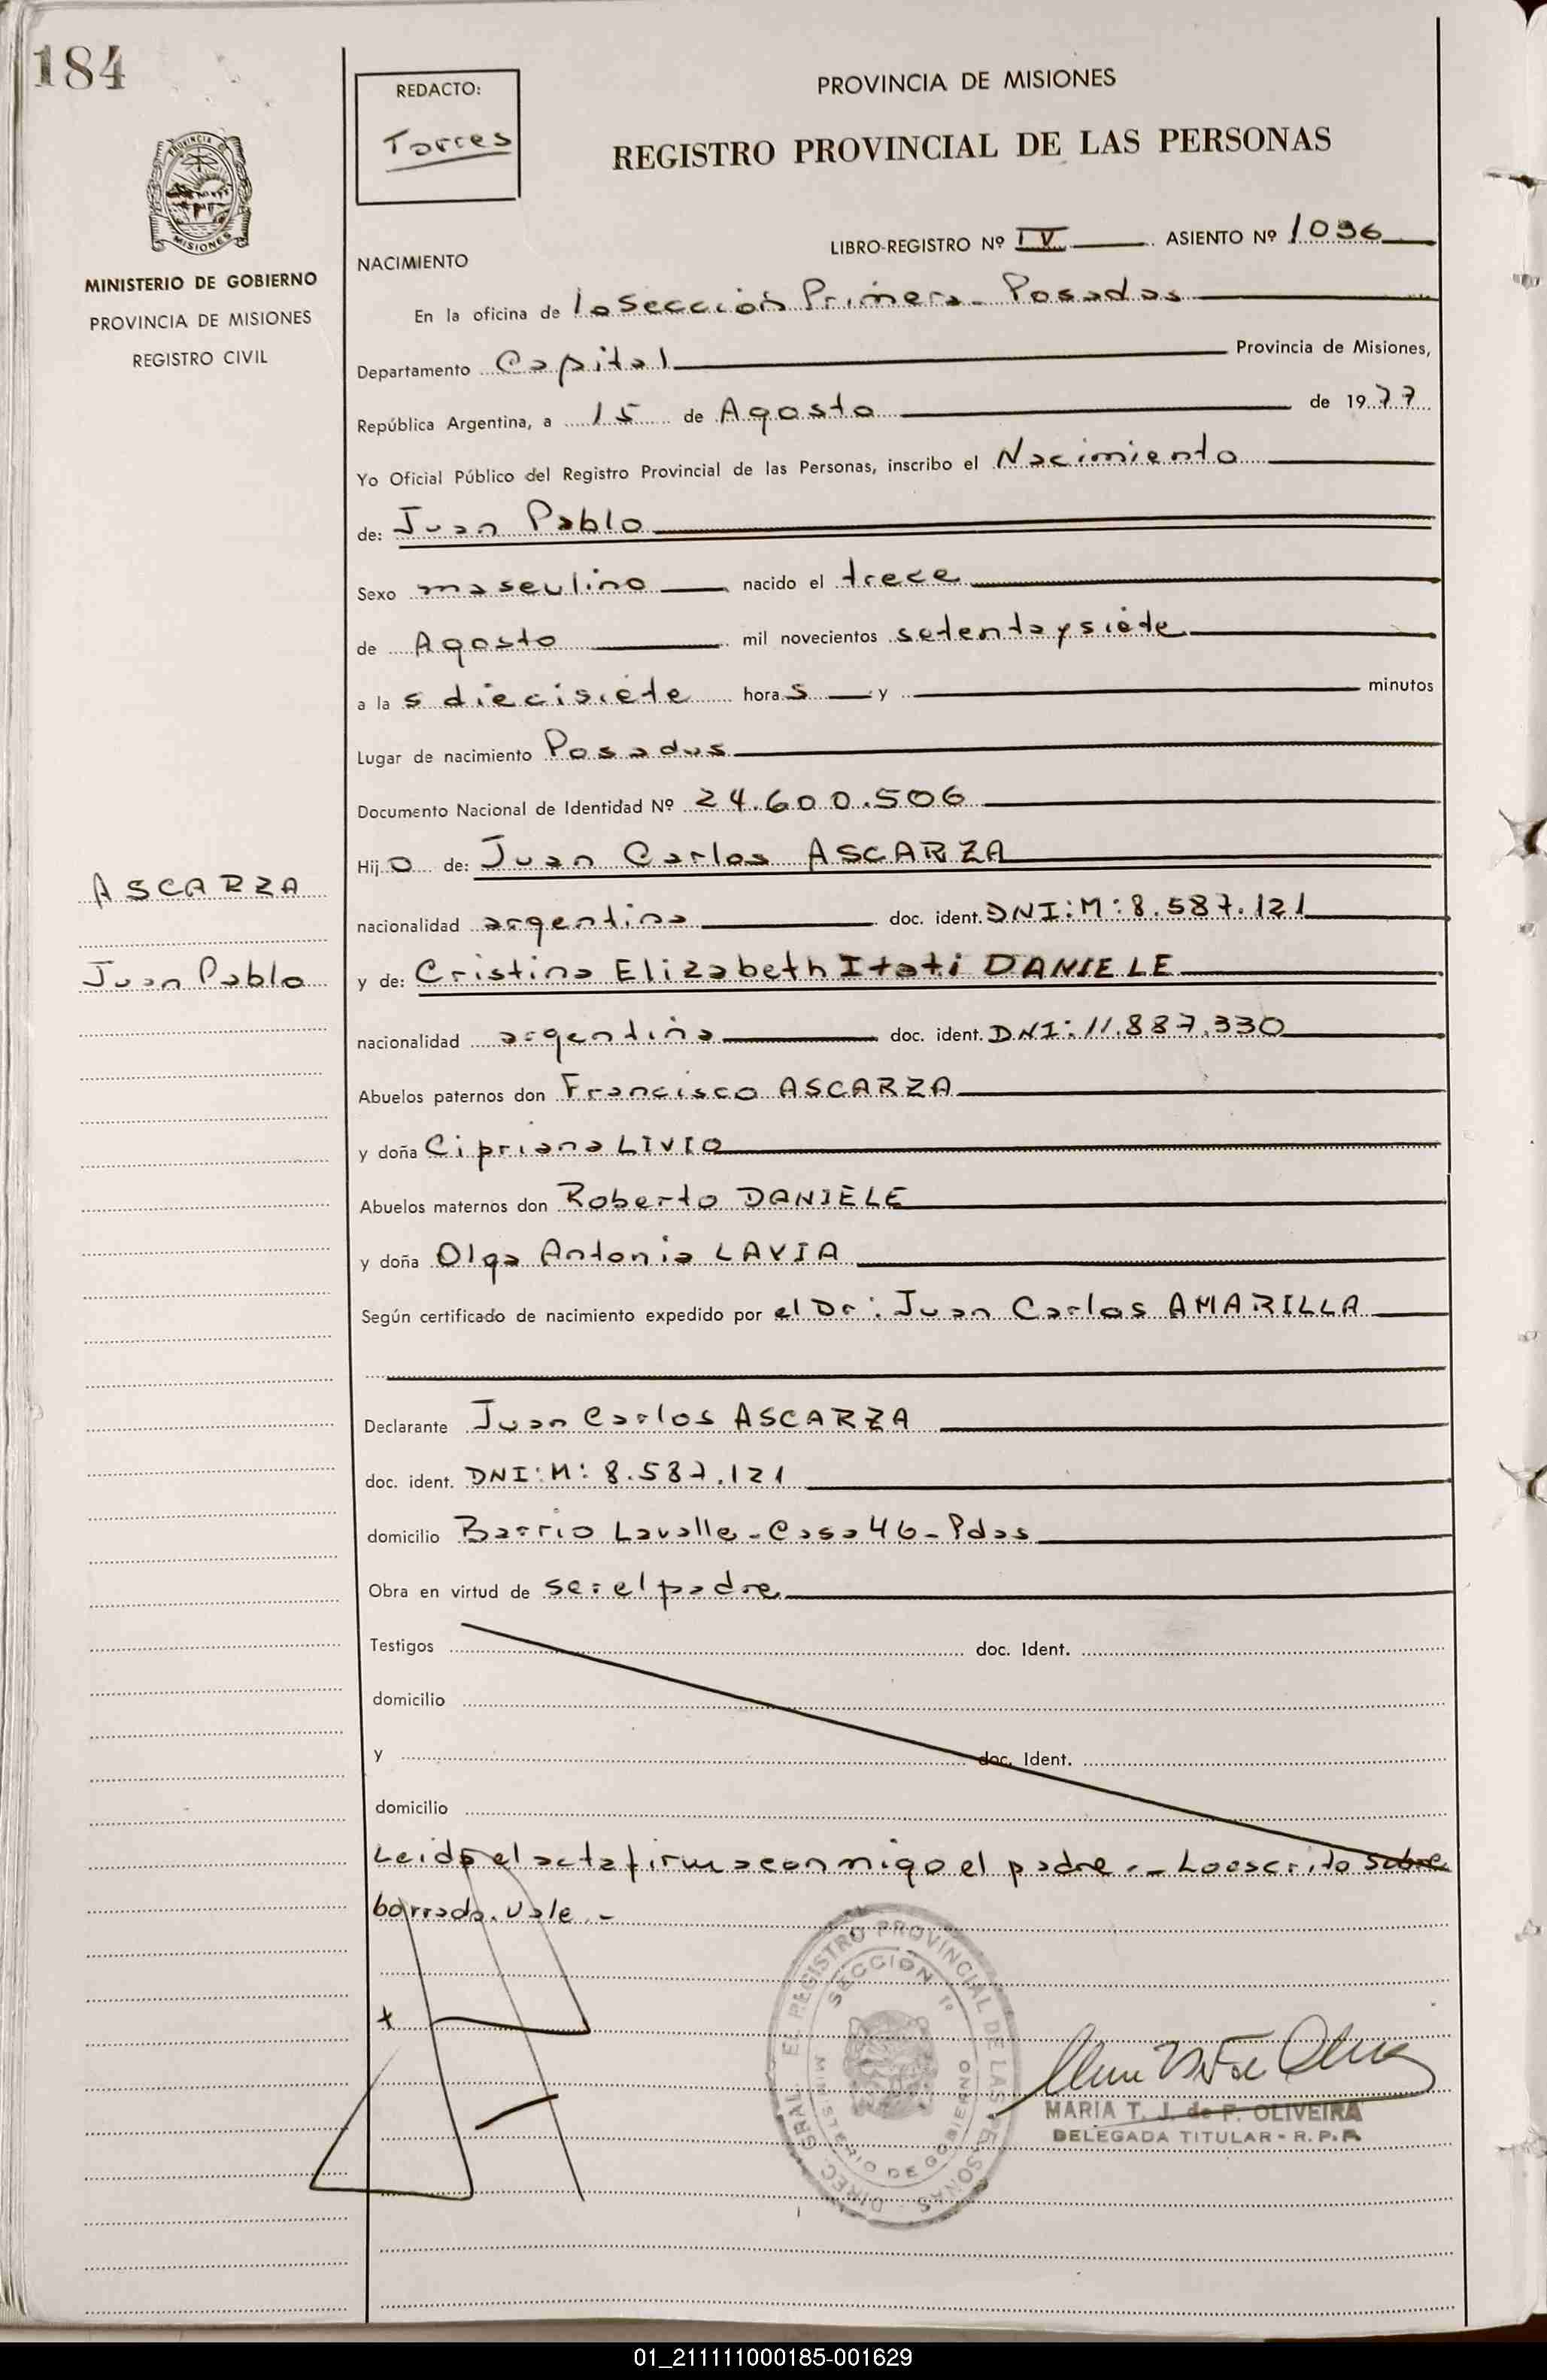 184
REDACTO:
Torres
PROVINCIA DE MISIONES
REGISTRO PROVINCIAL DE LAS PERSONAS
PROVINCIA DE
MISIONES
MINISTERIO DE GOBIERNO
PROVINCIA DE MISIONES
REGISTRO CIVIL
LIBRO-REGISTRO Nº IV ASIENTO Nº 1096
NACIMIENTO
En la oficina de la Sección Primera - Posadas
Departamento Capital Provincia de Misiones,
República Argentina, a 15 de Agosto de 1977
Yo Oficial Público del Registro Provincial de las Personas, inscribo el Nacimiento
de: Juan Pablo
Sexo masculino nacido el trece
de Agosto mil novecientos setenta y siete
a la s diecisiete hora s y minutos
Lugar de nacimiento Posadas
Documento Nacional de Identidad Nº 24.600.506
Hij o de: Juan Carlos ASCARZA
nacionalidad argentina doc. ident. DNI:M:8.587.121
ASCARZA
Juan Pablo
y de: Cristina Elizabeth Itati DANIELE
nacionalidad argentina doc. ident. DNI: 11.887.330
Abuelos paternos don Francisco ASCARZA
y doña Cipriana LIVIO
Abuelos maternos don Roberto DANIELE
y doña Olga Antonia LAVIA
Según certificado de nacimiento expedido por el Dr: Juan Carlos AMARILLA
Declarante Juan Carlos ASCARZA
doc. ident. DNI:M: 8.587.121
domicilio Barrio Lavalle - Casa 46 - Pdas
Obra en virtud de ser el padre
Testigos doc. Ident.
domicilio
y doc. Ident.
domicilio
Leida el acta firma conmigo el padre.- Lo escrito sobre
borrado. Vale.-
DIREC. GRAL. EL REGISTRO PROVINCIAL DE LAS PERSONAS
SECCION 1º
MINISTERIO DE GOBIERNO
MARIA T. J. de P. OLIVEIRA
DELEGADA TITULAR - R. P. P.
01_211111000185-001629